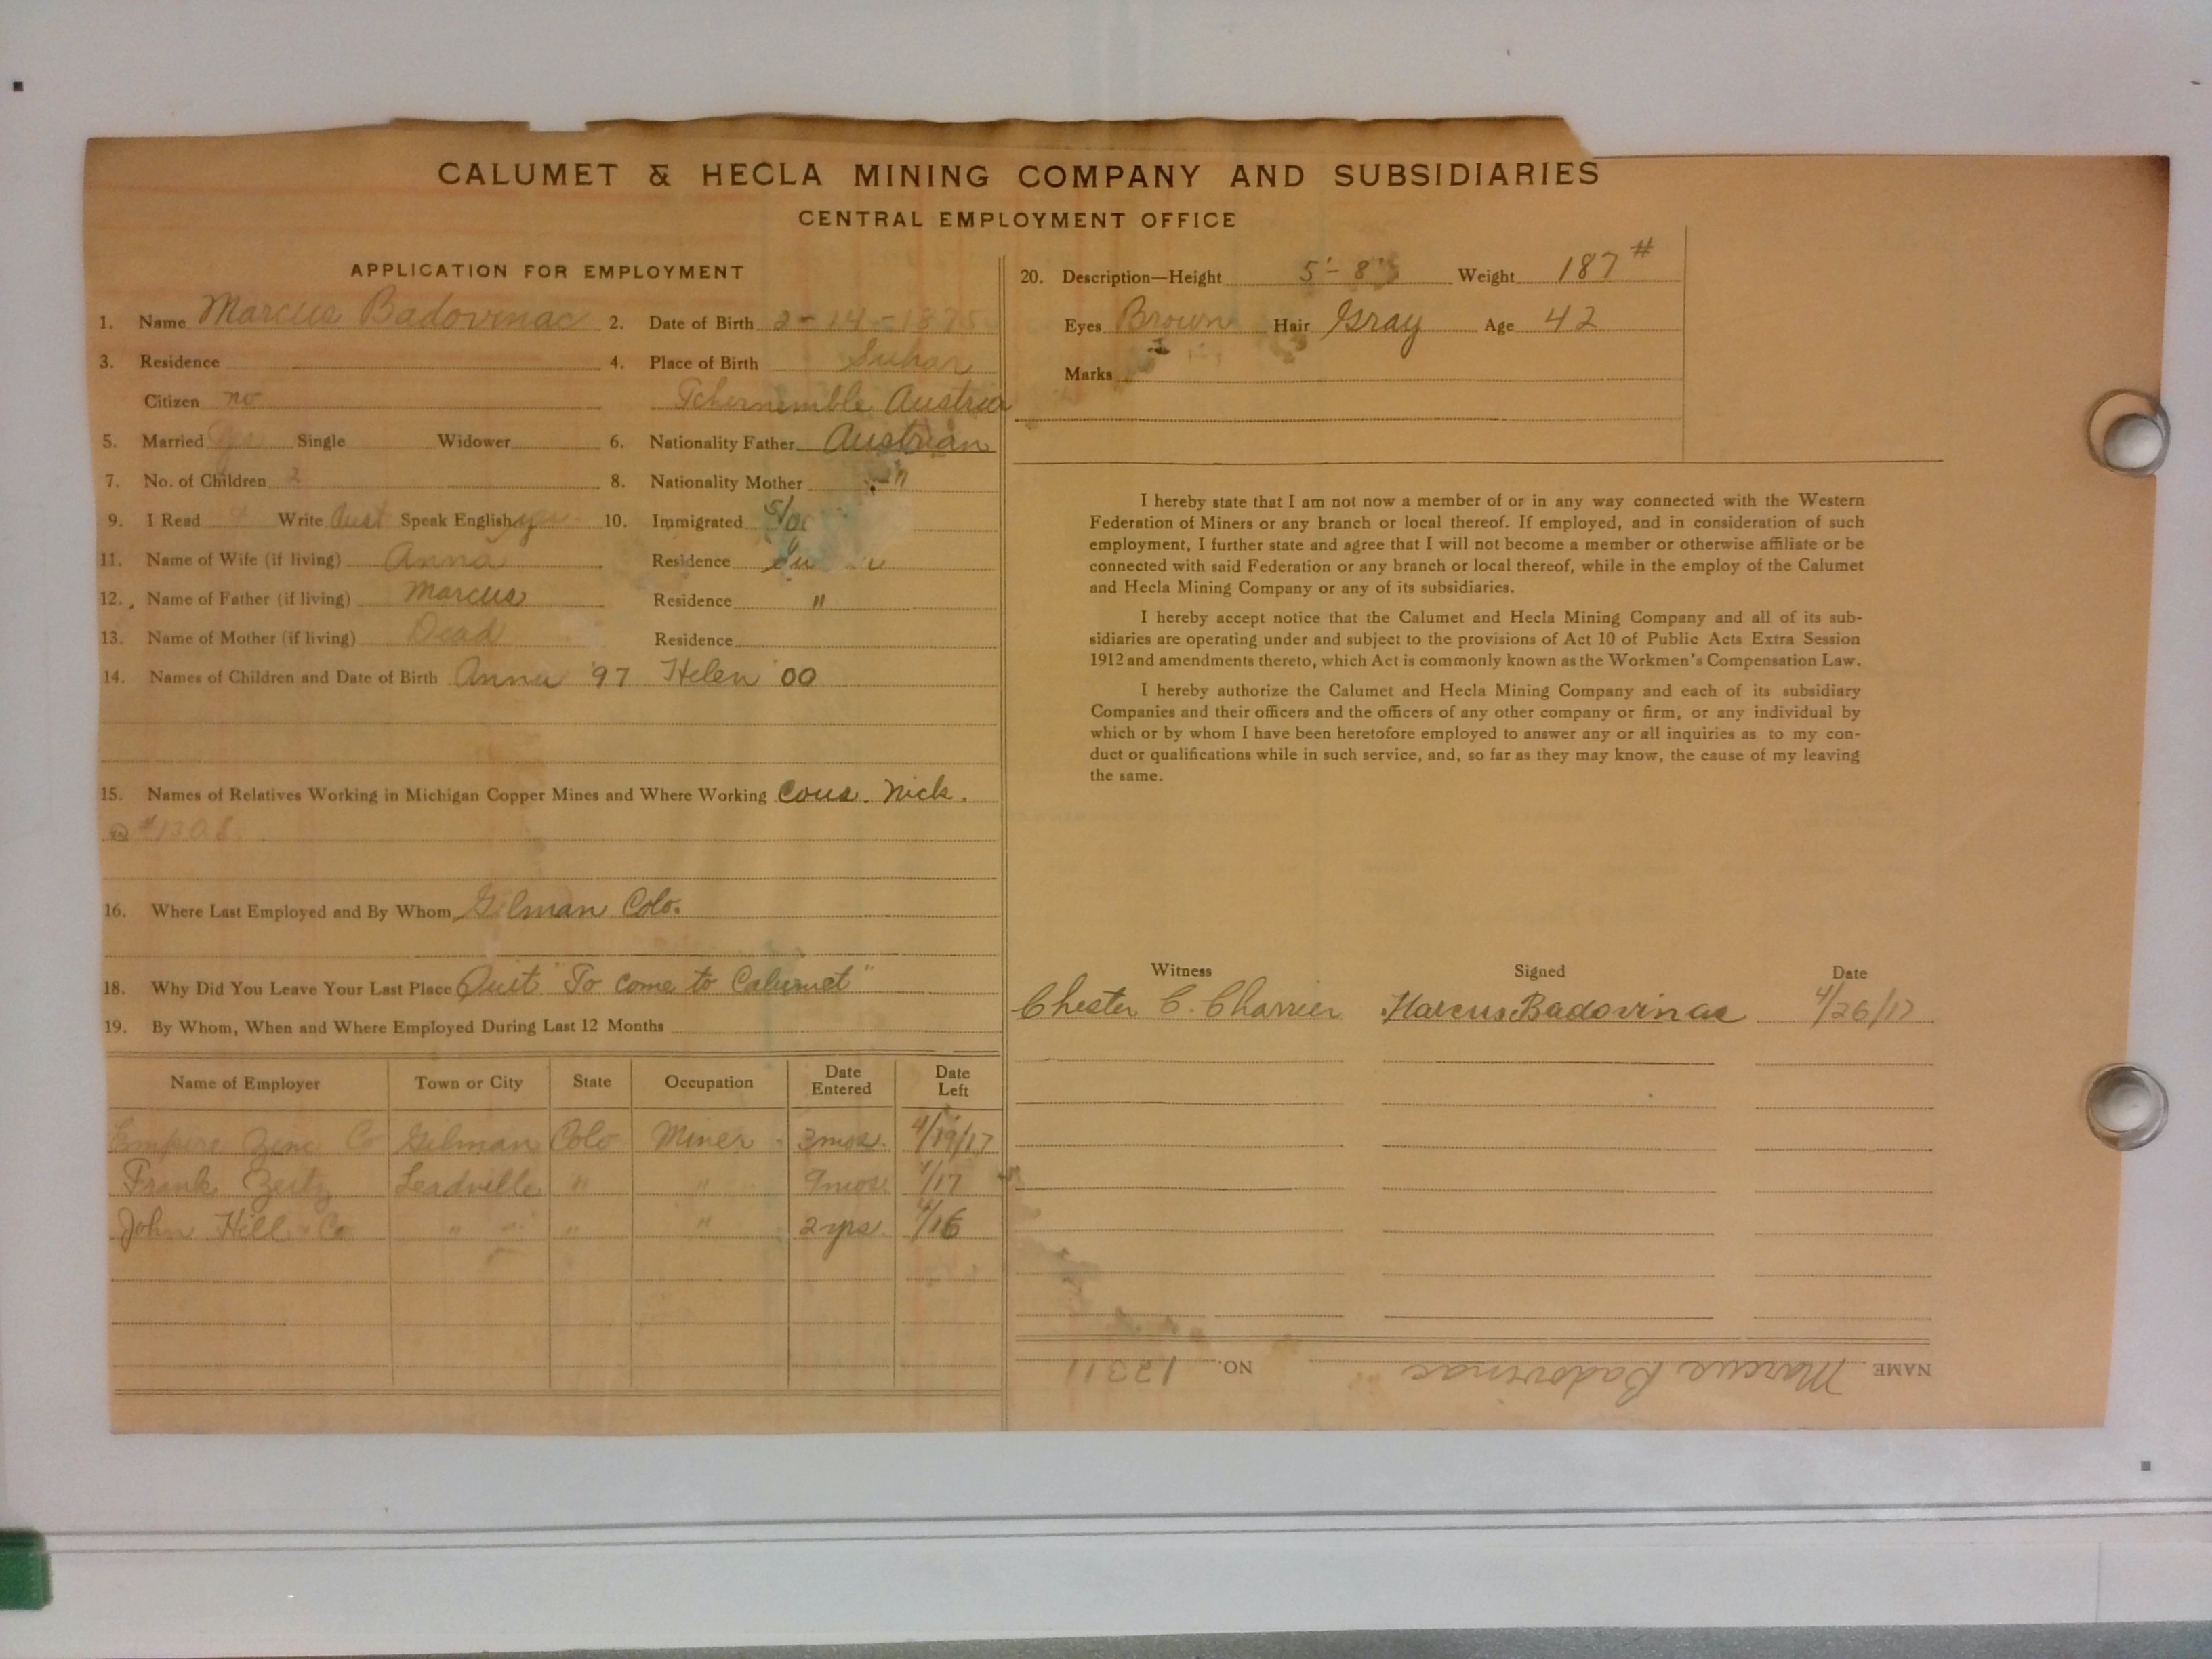 CALUMET & HECLA MINING COMPANY AND SUBSIDIARIES
CENTRAL EMPLOYMENT OFFICE
APPLICATION FOR EMPLOYMENT
1. Name Marcus Badovinac 2. Date of Birth 2-14-1875
3. Residence 4. Place of Birth Suhor
Citizen no Tchernemble Austria
5. Married yes Single Widower 6. Nationality Father Austrian
7. No. of Children 2 8. Nationality Mother "
9. I Read Write Aust Speak English yes 10. Immigrated
11. Name of Wife (if living) Anna Residence
12. Name of Father (if living) Marcus Residence "
13. Name of Mother (if living) Dead Residence
14. Names of Children and Date of Birth Anna '97 Helen '00
15. Names of Relatives Working in Michigan Copper Mines and Where Working Cous. Nick.
#1308
16. Where Last Employed and By Whom Gilman Colo.
18. Why Did You Leave Your Last Place Quit "To come to Calumet"
19. By Whom, When and Where Employed During Last 12 Months
Name of Employer Town or City State Occupation Date Entered Date Left
Empire Zinc Co Gilman Colo Miner 3mos. 4/19/17
Frank Zeitz Leadville " " 9mos. 1/17
John Hill Co " " " 2yrs 4/16
20. Description—Height 5'-8" Weight 187#
Eyes Brown Hair Gray Age 42
Marks
I hereby state that I am not now a member of or in any way connected with the Western
Federation of Miners or any branch or local thereof. If employed, and in consideration of such
employment, I further state and agree that I will not become a member or otherwise affiliate or be
connected with said Federation or any branch or local thereof, while in the employ of the Calumet
and Hecla Mining Company or any of its subsidiaries.
I hereby accept notice that the Calumet and Hecla Mining Company and all of its sub-
sidiaries are operating under and subject to the provisions of Act 10 of Public Acts Extra Session
1912 and amendments thereto, which Act is commonly known as the Workmen's Compensation Law.
I hereby authorize the Calumet and Hecla Mining Company and each of its subsidiary
Companies and their officers and the officers of any other company or firm, or any individual by
which or by whom I have been heretofore employed to answer any or all inquiries as to my con-
duct or qualifications while in such service, and, so far as they may know, the cause of my leaving
the same.
Witness Signed Date
Chester C. Charrier Marcus Badovinac 4/26/17
NAME Marcus Badovinac NO. 12311